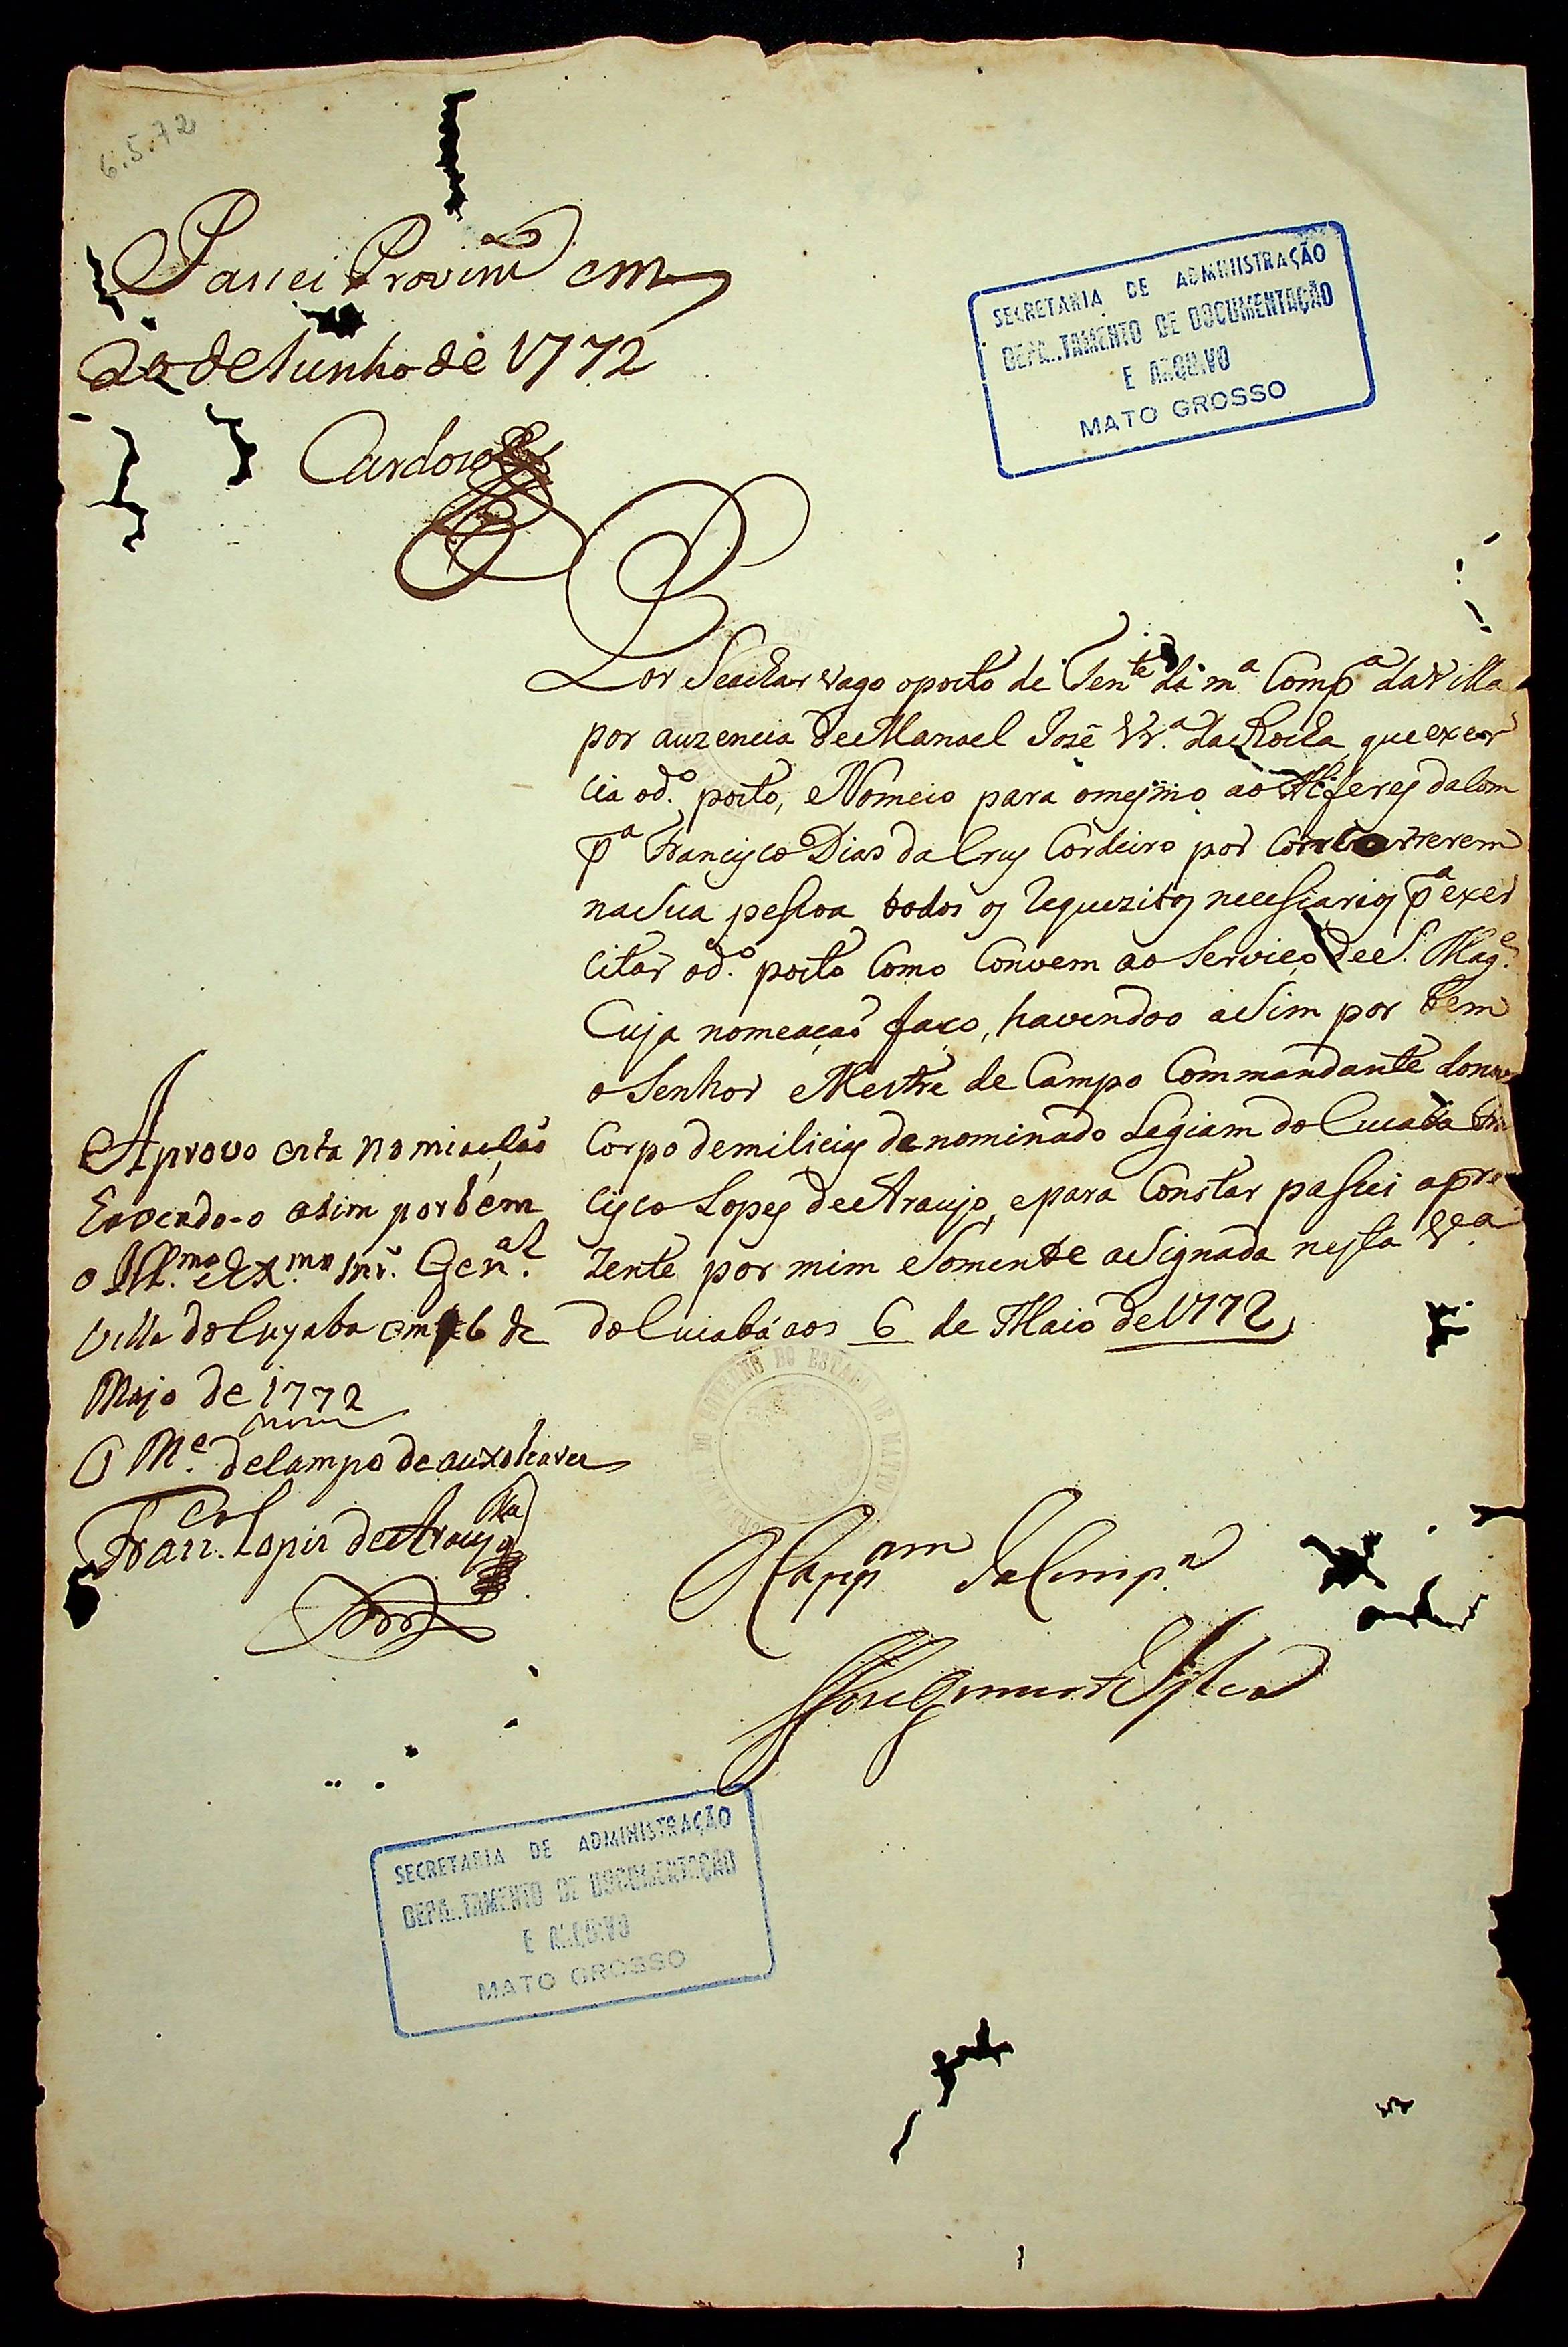 6.5.72
Passei Provim.to em
20 de Junho de 1772
Cardozo
SECRETARIA DE ADMINISTRAÇÃO
DEPA..TAMENTO DE DOCUMENTAÇÃO
E ARQUIVO
MATO GROSSO
Por Seachar vago oposto de Ten.te da m.a Comp.a da Villa
por auzencia de Manoel Jozé Vr.a da Rocha, que exer
cia od.o posto, Nomeio para omesmo ao Alferes da Com
p.a Francisco Dias da Cruz Cordeiro por Concorrerem
na Sua pessoa todos os Requezitos necessarios p.a exer
citar od.o posto Como Convem ao Serviço de S. Mag.e
Cuja nomeação faço, havendoo aSim por bem
o Senhor Mestre de Campo Commandante do novo
Corpo de milicias denominado Legiam do Cuiabá Fran
cisco Lopes de Araujo, e para Constar passei apre
zente por mim eSomente aSignada nesta V.a
do Cuiabá aos 6 de Maio de 1772
Aprovo esta nomiação
Eavendo-o asim por bem
o Ill.mo e Ex.mo Snr. Gen.al
Villa do Cuyaba em 6 de
Mayo de 1772
O M.e de Campo de auxoliares
Fran.co Lopes de Araujo
Capp.am da Comp.a
SECRETARIA DE ADMINISTRAÇÃO
DEPA..TAMENTO DE DOCUMENTAÇÃO
E ARQUIVO
MATO GROSSO